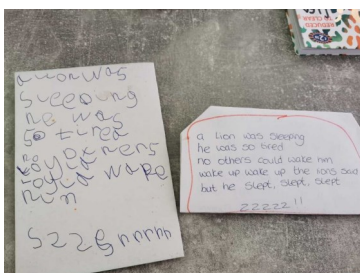 a lion was
sleeping
he was
so tired
no
could wake
him
a lion was sleeping
he was so tired
no others could wake him
wake up wake up the lions said
but he slept, slept, slept
zzzzz!!
REDUCED
TO CLEAR